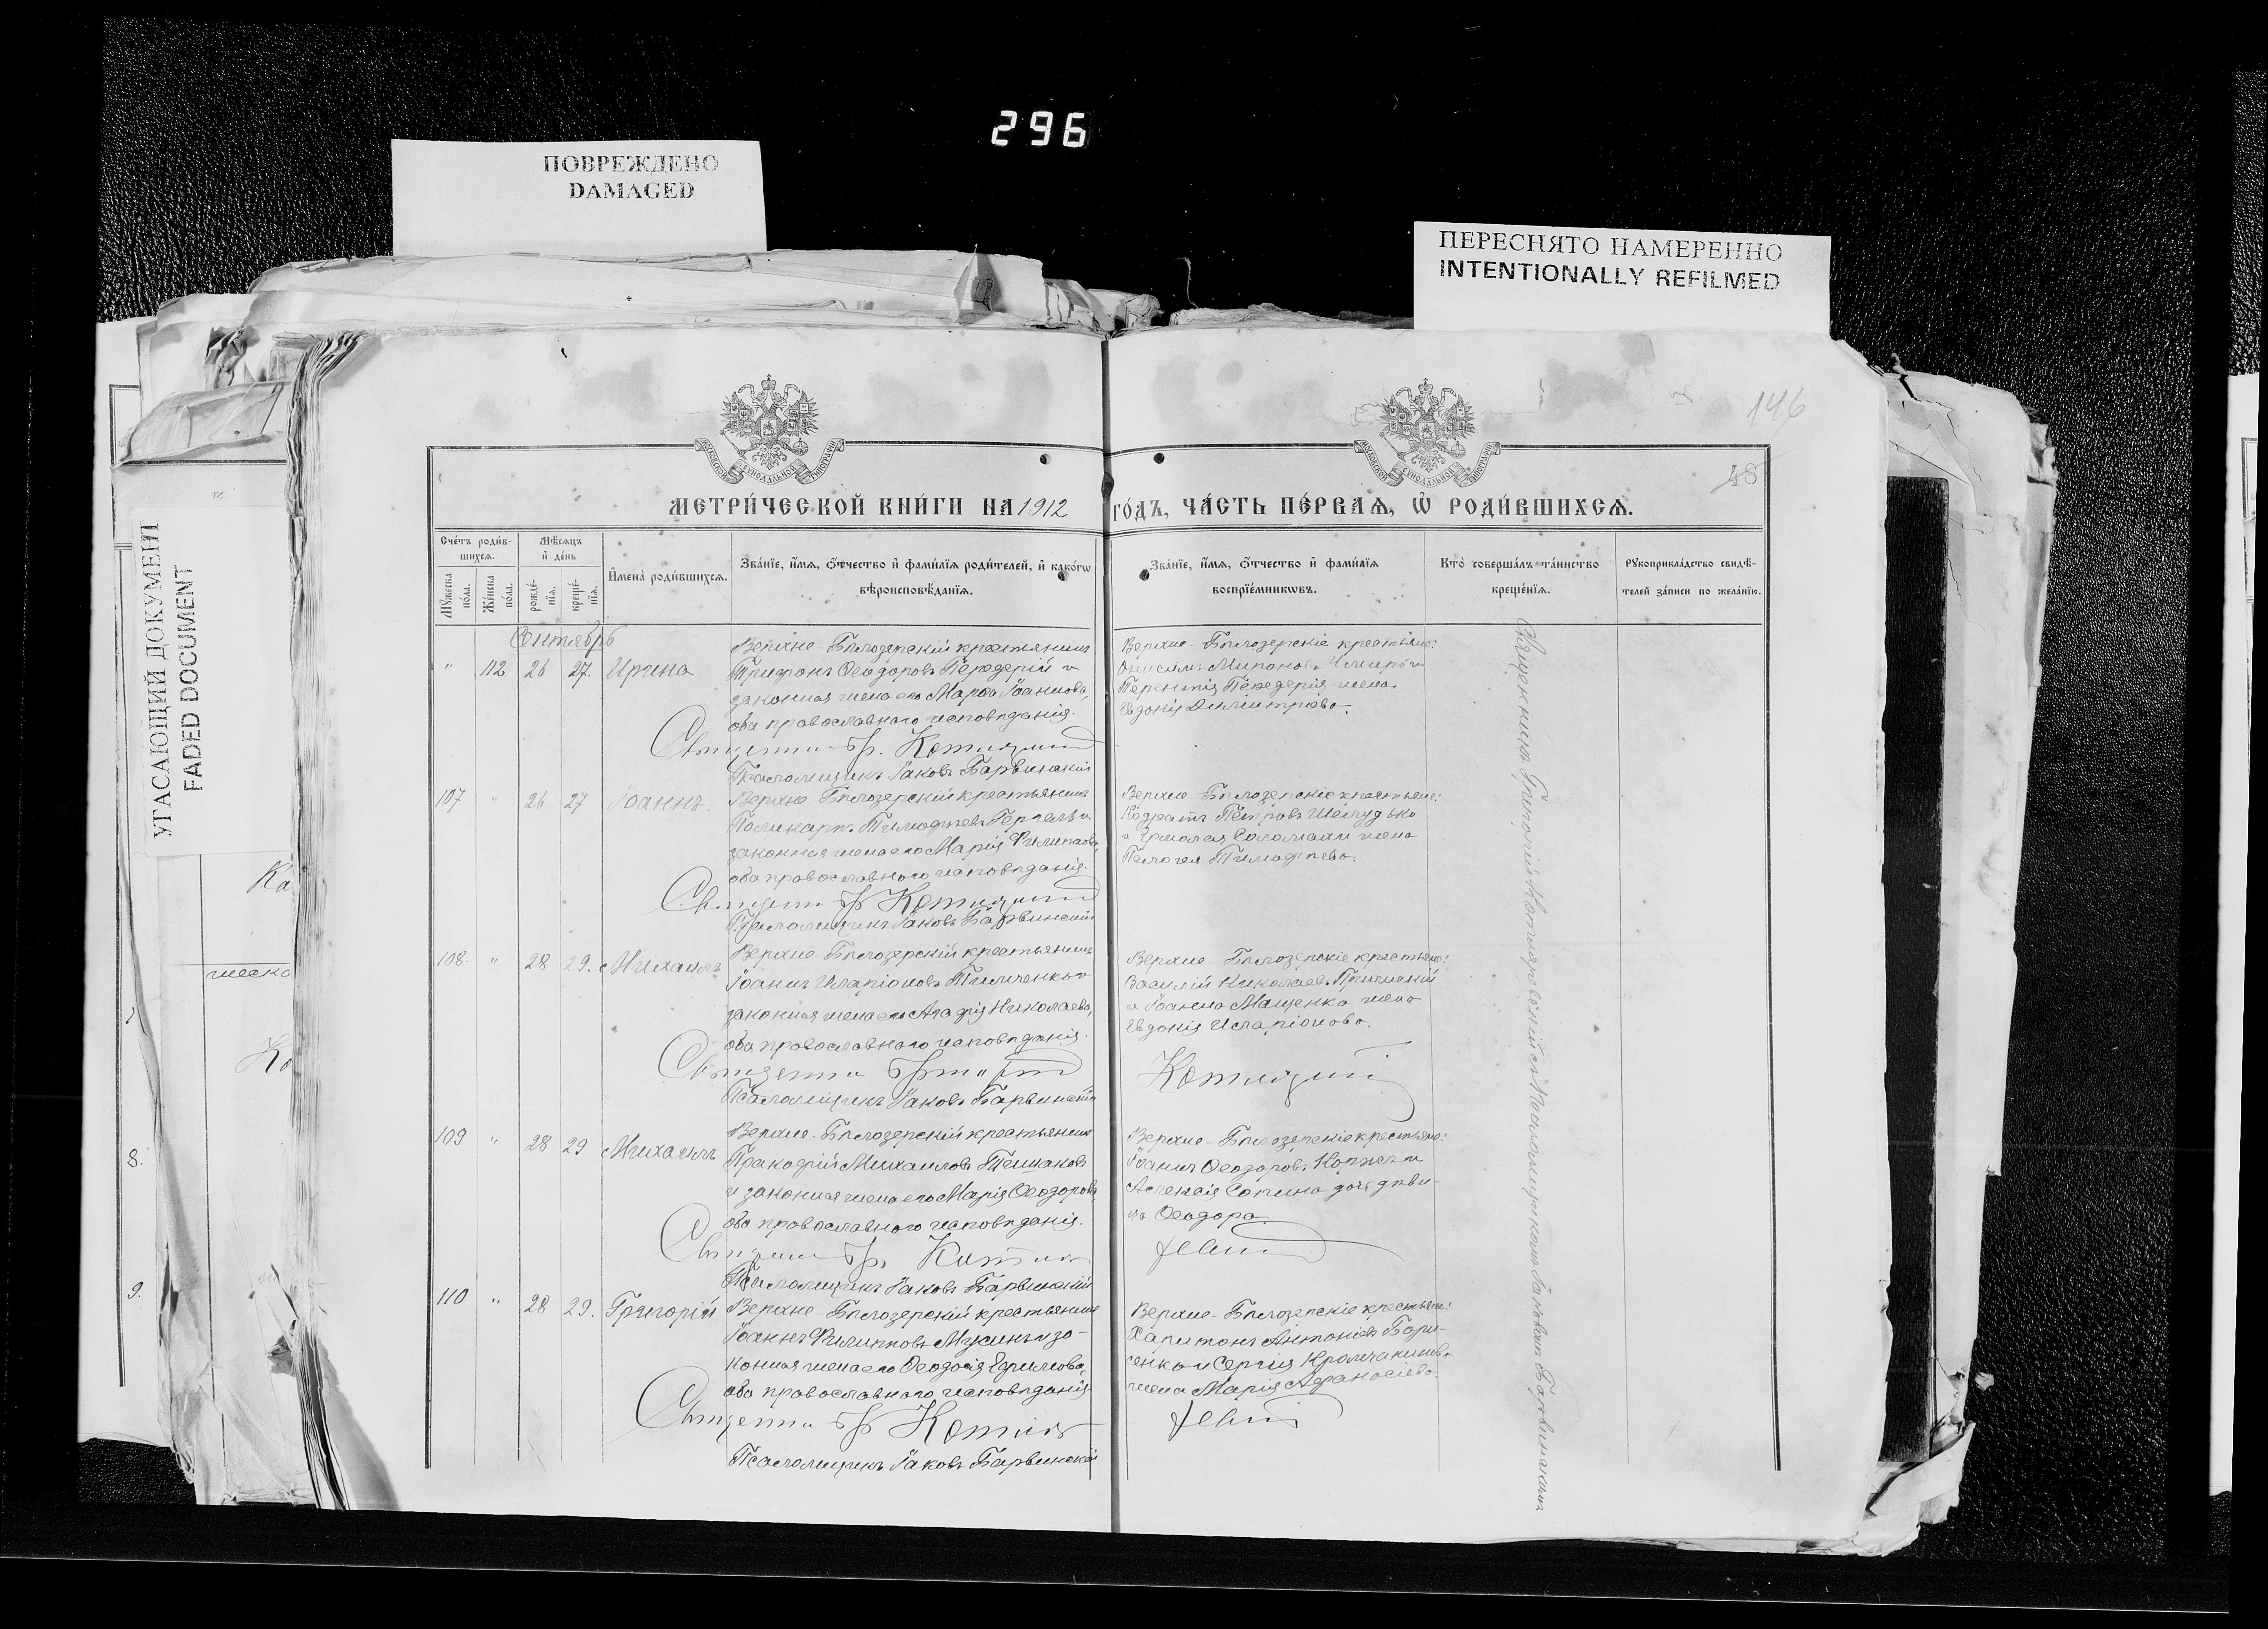 296
ПОВРЕЖДЕНО
DAMAGED
ПЕРЕСНЯТО НАМЕРЕННО
INTENTIONALLY REFILMED
УГАСАЮЩИЙ ДОКУМЕНТ
FADED DOCUMENT
146
48
МЕТРИ́ЧЕСКОЙ КНИ́ГИ НА 1912 ГО́ДЪ, ЧА́СТЬ ПЕ́РВАѦ, Ѡ҆ РОДИ́ВШИХСѦ.
Сче́тъ роди́в-
шихсѧ.
Мꙋ́жеска по́ла.
Же́нска по́ла.
Мѣ́сѧцъ
и҆ де́нь
рожде́-
нїѧ.
креще́-
нїѧ.
И҆мена̀ роди́вшихсѧ.
Зва́нїе, и҆́мѧ, ѻ҆́тчество и҆ фами́лїѧ роди́телей, и҆ како́гѡ
вѣроисповѣ́данїѧ.
Зва́нїе, и҆́мѧ, ѻ҆́тчество и҆ фами́лїѧ
воспрїе́мникѡвъ.
Кто̀ соверша́лъ та́инство
креще́нїѧ.
Рꙋкоприкла́дство свидѣ́-
телей за́писи по жела́нїю.
Сентябрь
" 112 26 27. Ирина
Верхне-Бѣлозерскій крестьянинъ
Трифонъ Ѳеодоровъ Передерій и
законная жена его Марѳа Іоаннова,
оба православнаго исповѣданія.
Псаломщикъ Іаковъ Барвинскій
Верхне-Бѣлозерскіе крестьяне:
Онисимъ Мироновъ
Терентія Передерія жена
Евдокія Димитріева.
107 " 26 27 Іоаннъ.
Верхне-Бѣлозерскій крестьянинъ
Поликарпъ Тимоѳеевъ
законная жена его Марія Филиппова,
оба православнаго исповѣданія.
Псаломщикъ Іаковъ Барвинскій
Верхне-Бѣлозерскіе крестьяне:
Кодратъ Петровъ Шелудько
и Ермолая жена
Пелагея Тимоѳеева.
108. " 28 29. Михаилъ
Верхне-Бѣлозерскій крестьянинъ
Іоаннъ Иларіоновъ Тимченко и
законная жена его Агафія Николаева,
оба православнаго исповѣданія.
Псаломщикъ Іаковъ Барвинскій
Верхне-Бѣлозерскіе крестьяне:
Василій Николаевъ
и Іоанна Мащенко жена
Евдокія Иларіонова.
109 " 28 29 Михаилъ
Верхне-Бѣлозерскій крестьянинъ
Прокофій Михаиловъ
и законная жена его Марія Ѳеодорова,
оба православнаго исповѣданія.
Псаломщикъ Іаковъ Барвинскій
Верхне-Бѣлозерскіе крестьяне:
Іоаннъ Ѳеодоровъ Коржъ и
Алексія Сопина дочь дѣви-
ца Ѳеодора.
110 " 28 29. Григорій
Верхне-Бѣлозерскій крестьянинъ
Іоаннъ Филипповъ и за-
конная жена его Ѳеодосія Ефимова,
оба православнаго исповѣданія
Псаломщикъ Іаковъ Барвинскій
Верхне-Бѣлозерскіе крестьяне:
Харитонъ Антоніевъ Бори-
сенко и Сергія
жена Марія Афанасіева.
Священникъ Григорій Котляревскій съ Псаломщикомъ Іаковомъ Барвинскимъ
8.
9.